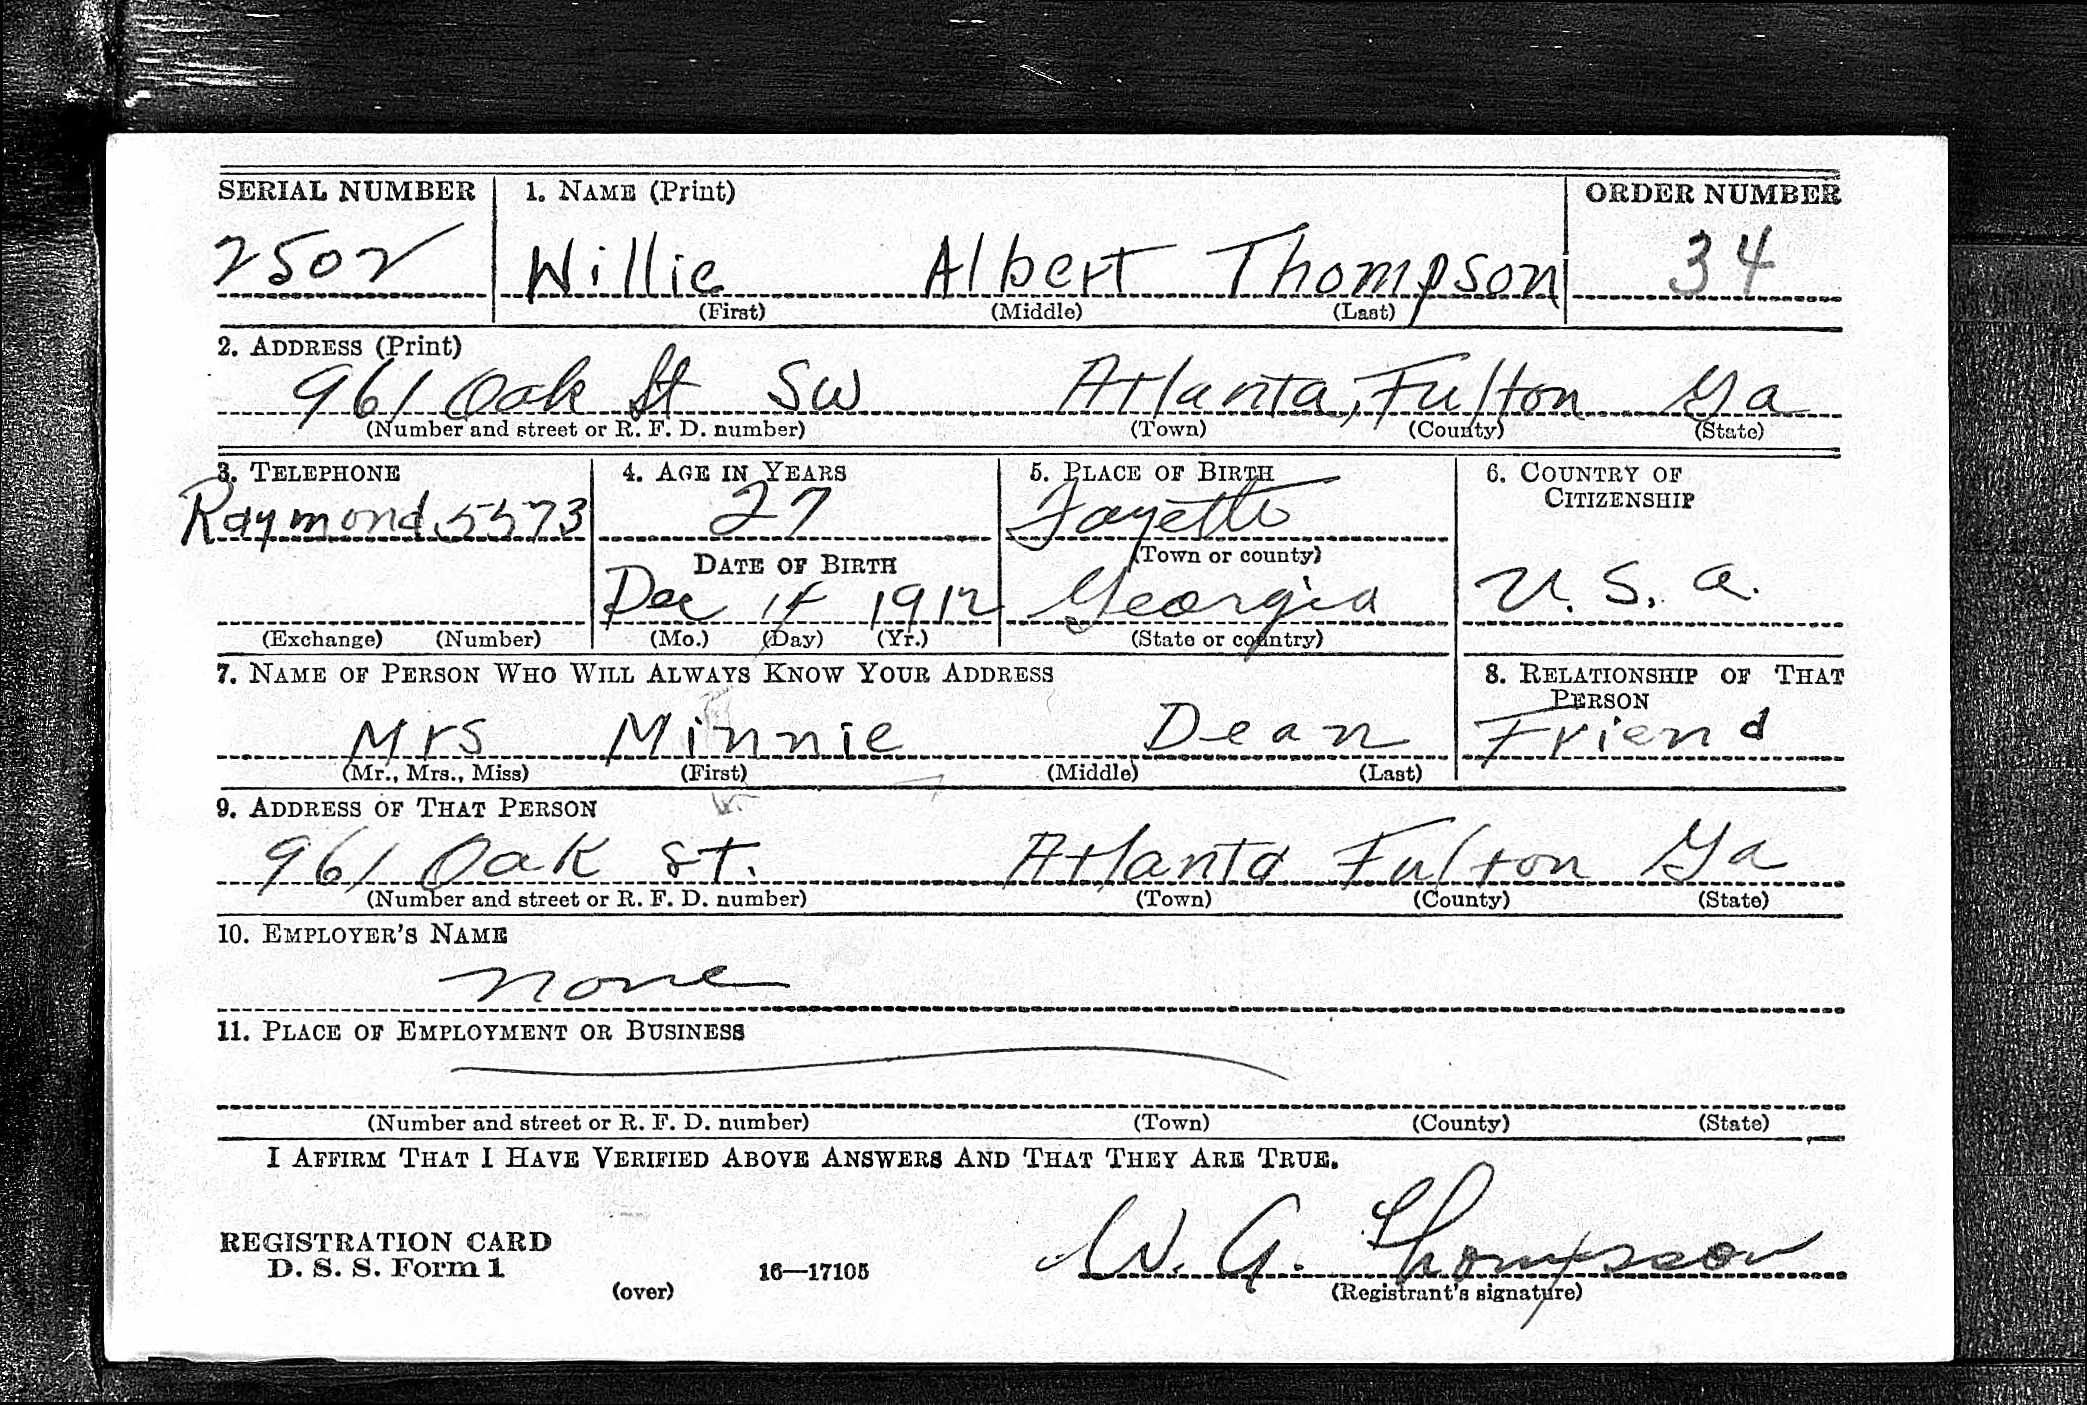 SERIAL NUMBER 1. NAME (Print) ORDER NUMBER
2502 Willie Albert Thompson 34
(First) (Middle) (Last)
2. ADDRESS (Print)
961 Oak St SW Atlanta, Fulton Ga
(Number and street or R. F. D. number) (Town) (County) (State)
3. TELEPHONE 4. AGE IN YEARS 5. PLACE OF BIRTH 6. COUNTRY OF
CITIZENSHIP
Raymond 5573 27 Fayette
DATE OF BIRTH (Town or county)
Dec 14 1912 Georgia U. S. A.
(Exchange) (Number) (Mo.) (Day) (Yr.) (State or country)
7. NAME OF PERSON WHO WILL ALWAYS KNOW YOUR ADDRESS 8. RELATIONSHIP OF THAT
PERSON
Mrs Minnie Dean Friend
(Mr., Mrs., Miss) (First) (Middle) (Last)
9. ADDRESS OF THAT PERSON
961 Oak St. Atlanta Fulton Ga
(Number and street or R. F. D. number) (Town) (County) (State)
10. EMPLOYER'S NAME
none
11. PLACE OF EMPLOYMENT OR BUSINESS
(Number and street or R. F. D. number) (Town) (County) (State)
I AFFIRM THAT I HAVE VERIFIED ABOVE ANSWERS AND THAT THEY ARE TRUE.
W. A. Thompson
REGISTRATION CARD
D. S. S. Form 1 16—17105
(over) (Registrant's signature)